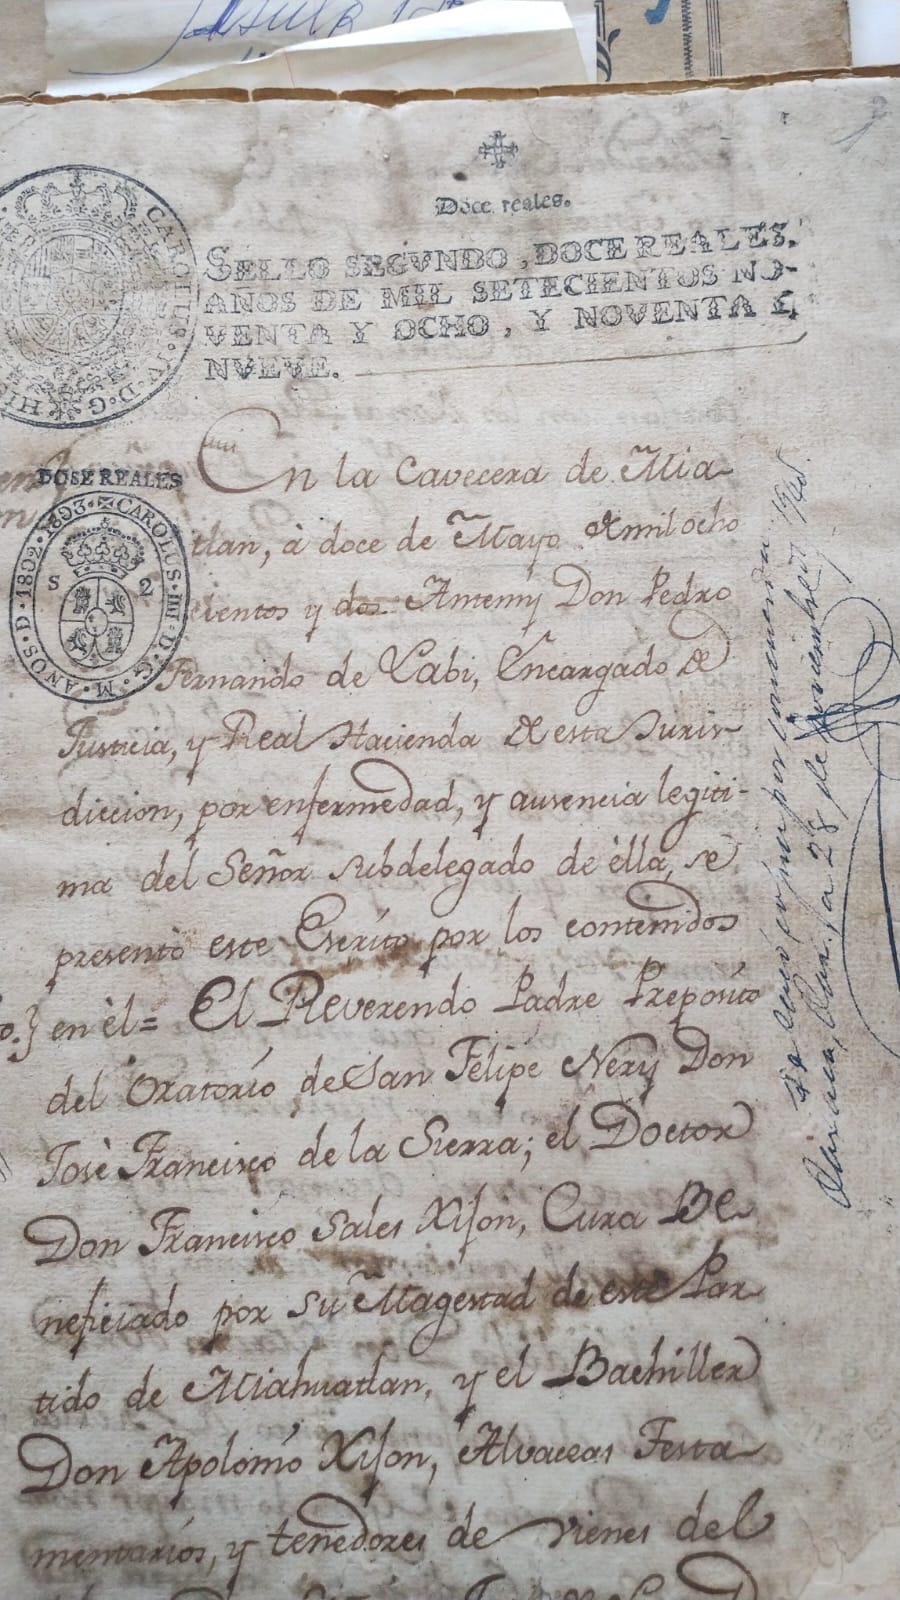 Doce reales.
SELLO SEGVNDO, DOCE REALES,
AÑOS DE MIL SETECIENTOS NO-
VENTA Y OCHO, Y NOVENTA Y
NVEVE.
CAROLUS IV D G HIS
DOSE REALES
CAROLUS IIII D G M AÑOS D 1802 1803
S 2
En la Cavecera de Mia
tlan, à doce de Mayo de mil ocho
cientos y dos Antemỹ Don Pedro
Fernando de Labi, Encargado de
Justicia, y Real Hacienda de esta Juris-
diccion, por enfermedad, y ausencia legiti-
ma del Señor subdelegado de èlla, se
presentò este Escrito por los contenidos
en èl= El Reverendo Padre Prepósito
del Oratorio de San Felipe Nery Don
Josè Francisco de la Sierra; el Doctor
Don Francisco Sales Xijon, Cura Be
neficiado por su Magestad de este Par
tido de Miahuatlan, y el Bachiller
Don Apolonio Xijon, Alvaceas Testa
mentarios, y tenedores de vienes del
Oaxaca, a 28 de Noviembre